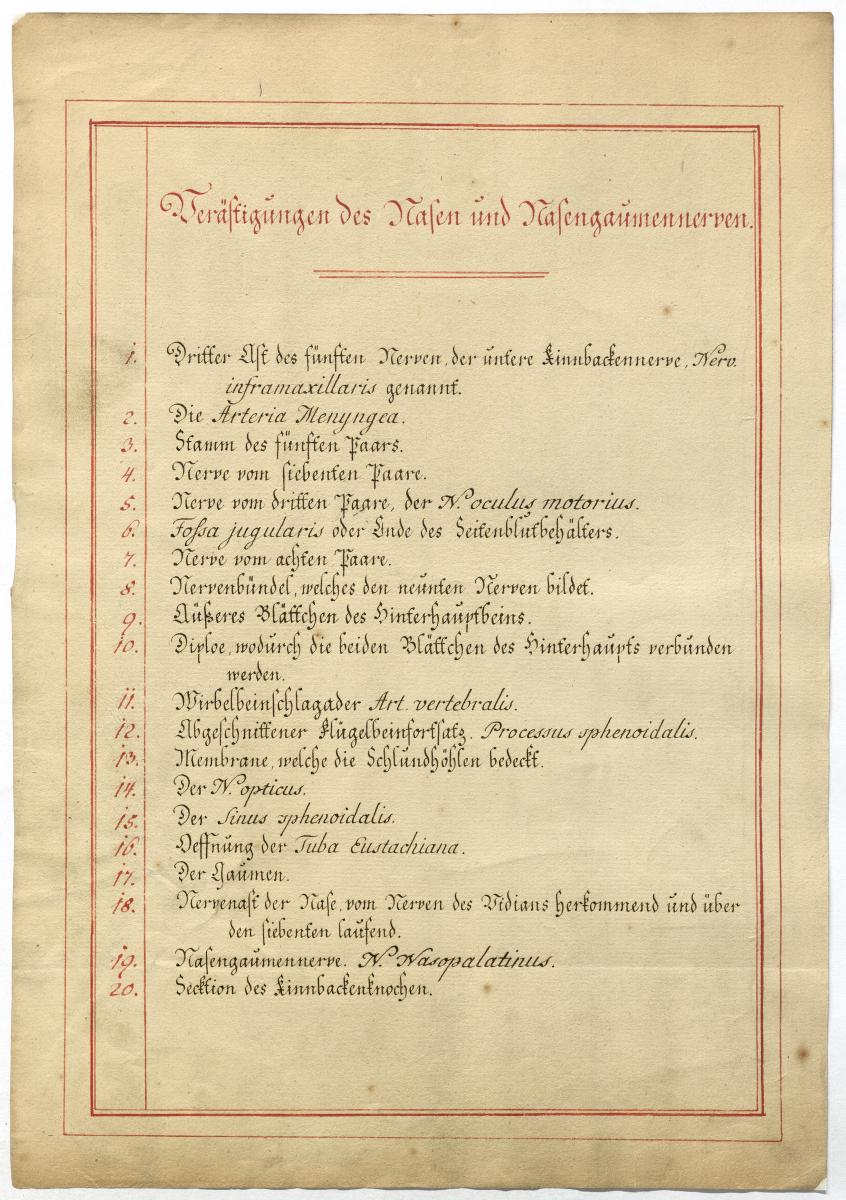 Verästigungen des Nasen und Nasengaumennerven.
1. Dritter Ast des fünften Nerven, der untere Kinnbackennerve, Nerv.
inframaxillaris genannt.
2. Die Arteria Menyngea.
3. Stamm des fünften Paars.
4. Nerve vom siebenten Paare.
5. Nerve vom dritten Paare, der N. oculus motorius.
6. Fossa jugularis oder Ende des Seitenblutbehälters.
7. Nerve vom achten Paare.
8. Nervenbündel, welches den neunten Nerven bildet.
9. Äußeres Blättchen des Hinterhauptbeins.
10. Diploe, wodurch die beiden Blättchen des Hinterhaupts verbunden
werden.
11. Wirbelbeinschlagader Art. vertebralis.
12. Abgeschnittener Flügelbeinfortsatz. Processus sphenoidalis.
13. Membrane, welche die Schlundhöhlen bedeckt.
14. Der N. opticus.
15. Der Sinus sphenoidalis.
16. Oeffnung der Tuba Eustachiana.
17. Der Gaumen.
18. Nervenast der Nase, vom Nerven des Vidians herkommend und über
den siebenten laufend.
19. Nasengaumennerve. N. Nasopalatinus.
20. Secktion des Kinnbackenknochen.